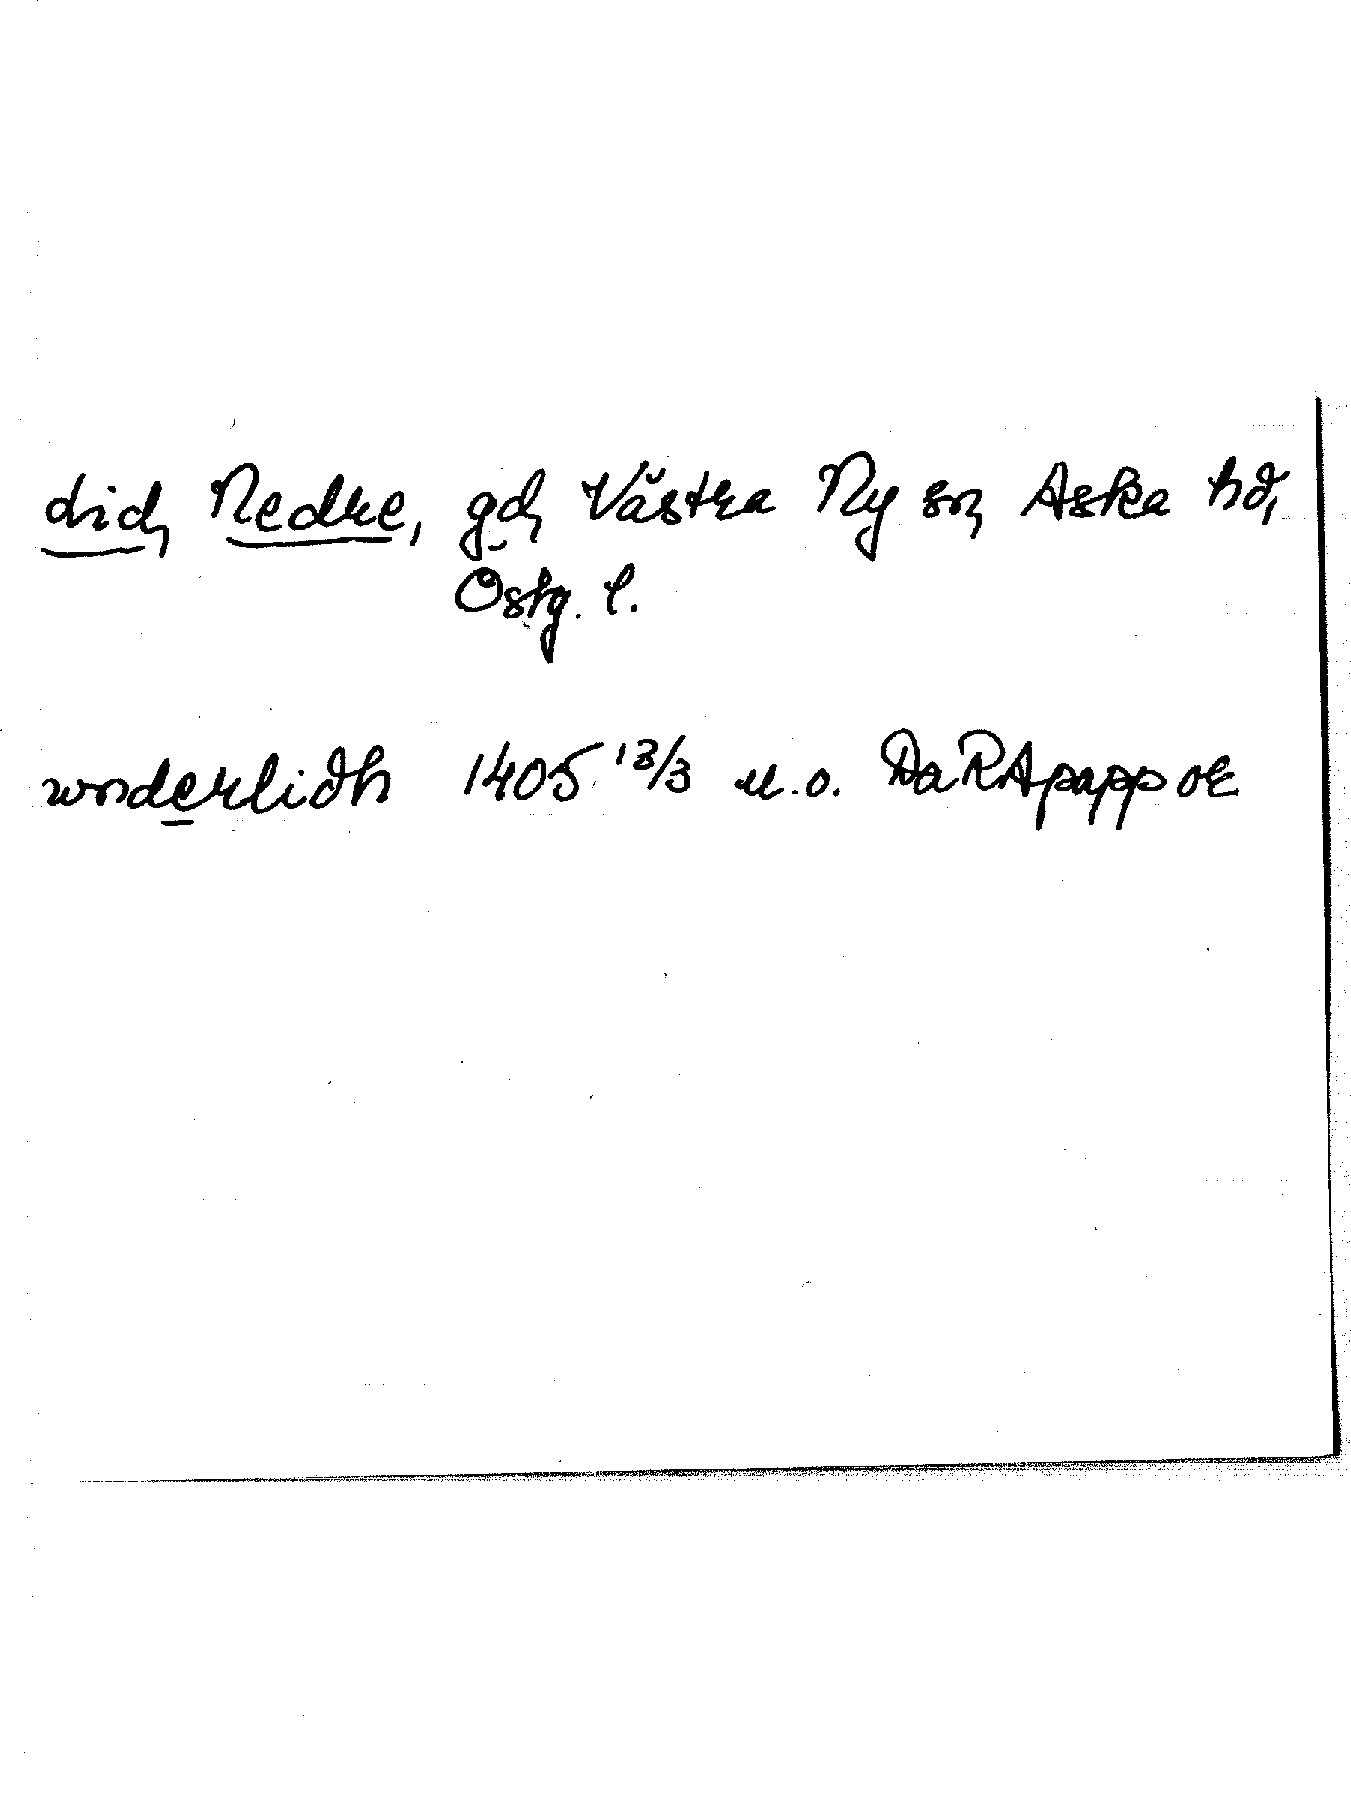 did, Nedre, gd, Västra Ny sn, Aska hd,
Östg. l.
worderlidh 1405 13/3 u.o. DaRApapp or